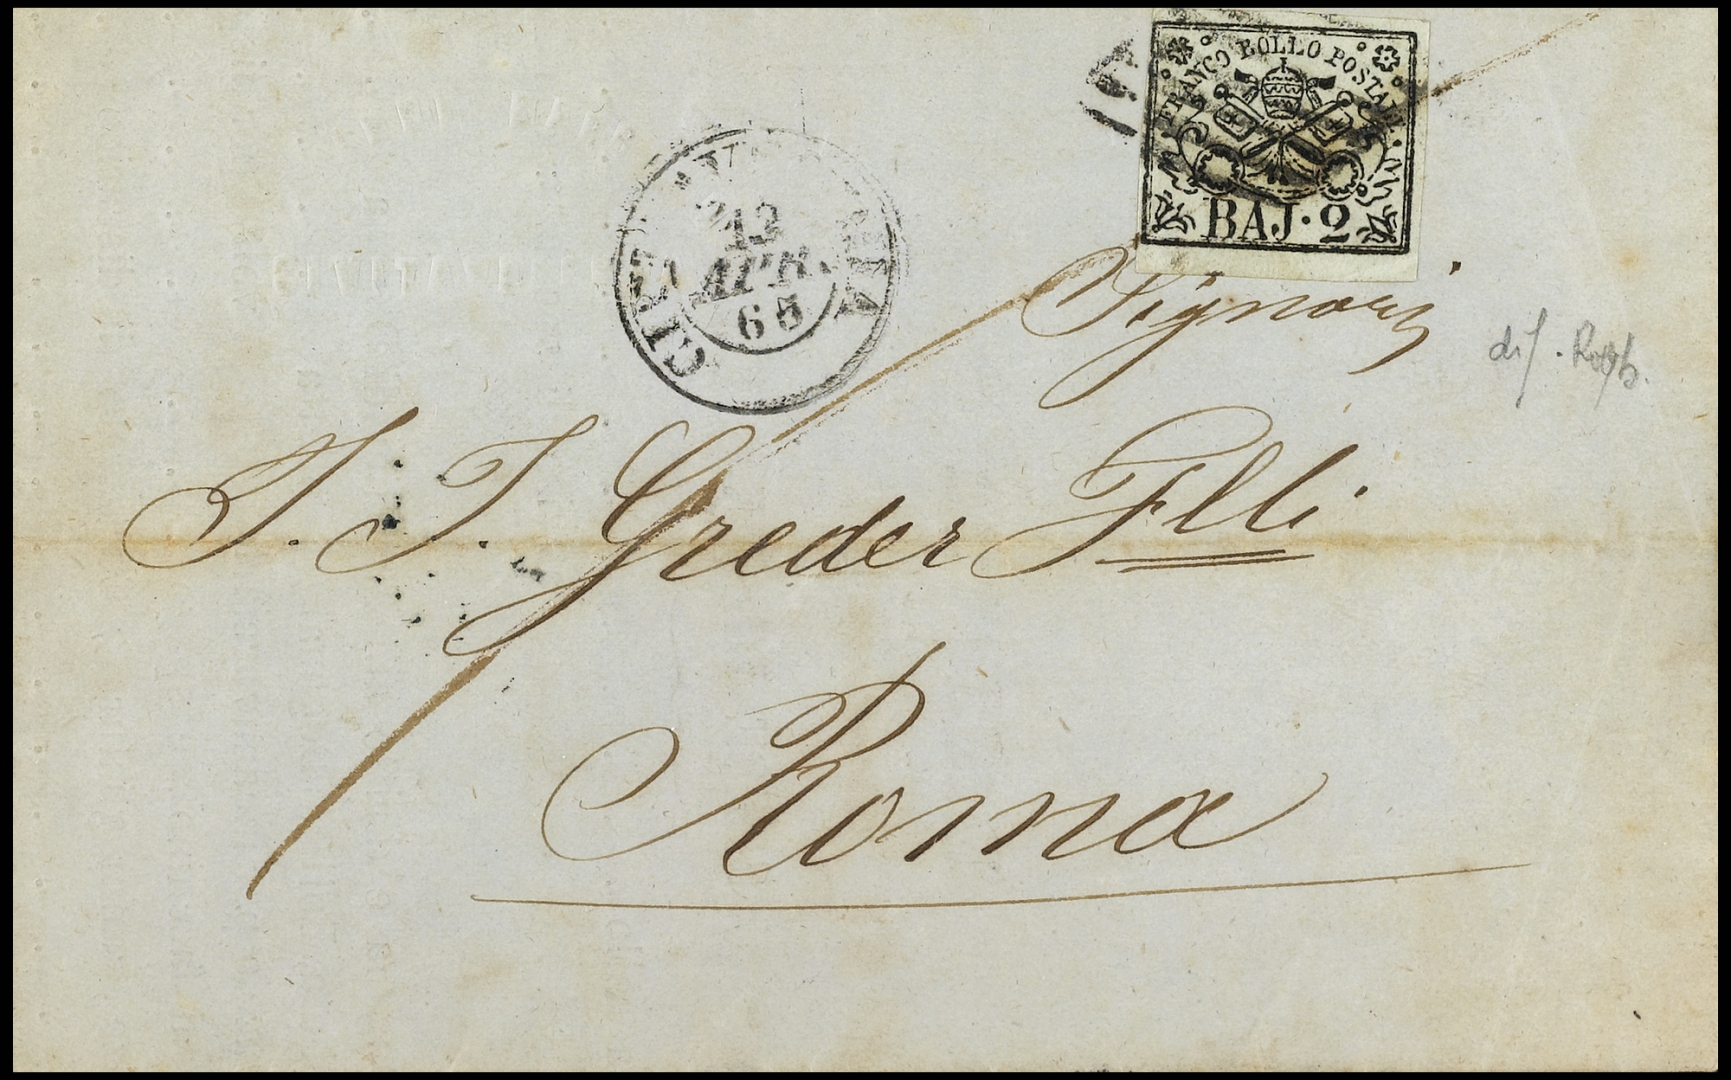 FRANCO BOLLO POSTALE
BAJ·2
CIVITAVECCHIA
13
APR.
65
Signori
J. J. Greder Flli
Roma